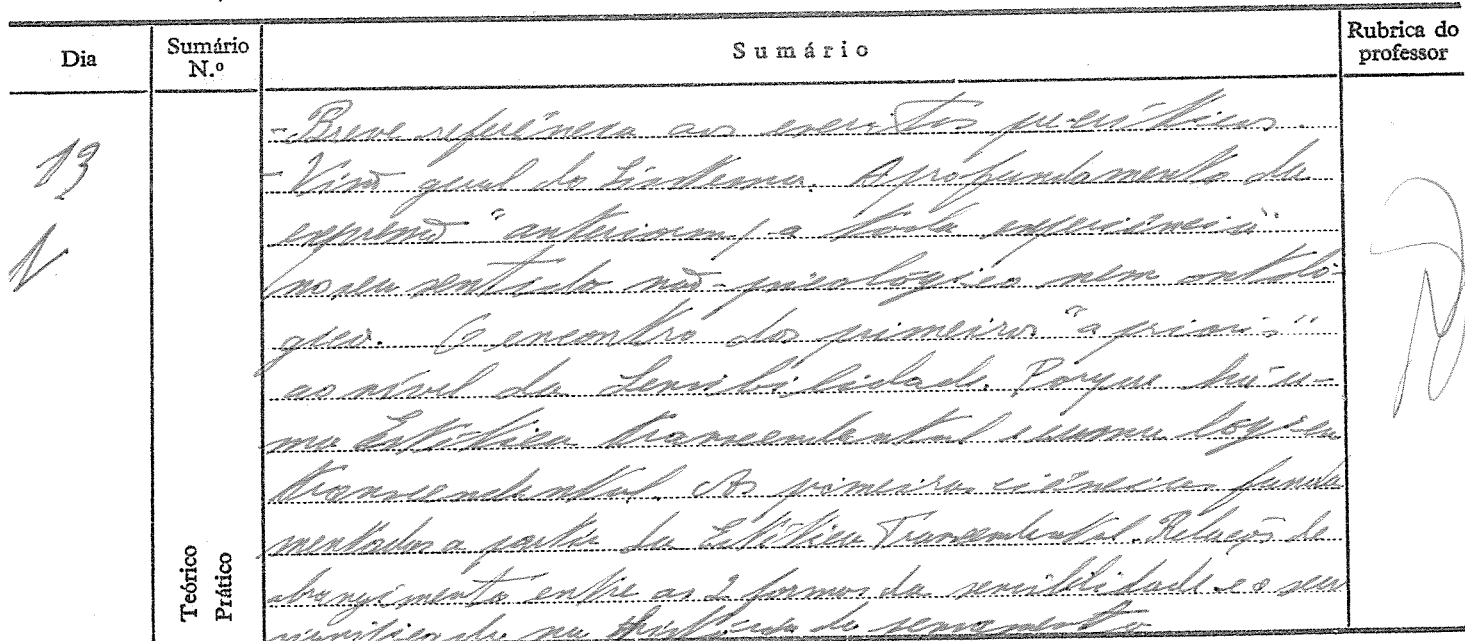 Dia
Sumário N.º
Sumário
Rubrica do professor
13
- Breve referência aos escritos pré-críticos.
- Visão geral do Sistema. Aprofundamento da
expressão "anteriorm/ a toda experiência"
no seu sentido não-psicológico nem ontoló-
gico. O encontro dos primeiros "a prioris"
ao nível da Sensibilidade. Porque há u-
ma Estética transcendental e uma lógica
transcendental. As primeiras ciências funda
mentadas a partir da Estética Transcendental. Relação de
abrangimento entre as 2 formas da sensibilidade e o seu
significado na do pensamento
Teórico
Prático